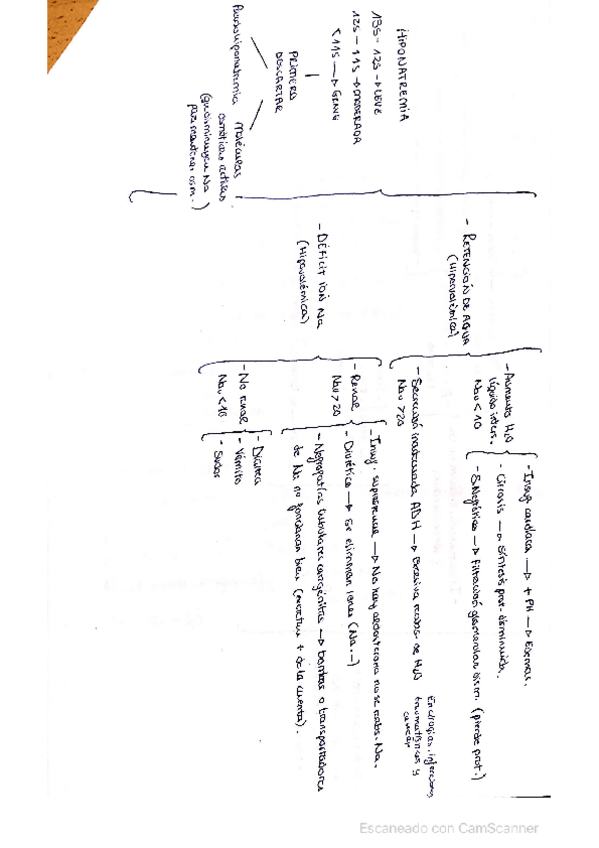 HIPONATREMIA
135 - 125 → LEVE
125 - 115 → MODERADA
< 115 → GRAVE
PRIMERO
DESCARTAR
Pseudohiponatremia
moléculas
osmóticas activas
(que disminuyen Na
para mantener osm.)
- RETENCIÓN DE AGUA
(Hipervolémica)
- Aumento H2O
líquido inters.
Nau < 10
- Insuf. cardíaca → + PH → Edemas.
- Cirrosis → Síntesis prot. disminuida.
- S. Nefrótico → Filtración glomerular dism. (pierde prot.)
- Secreción inadecuada ADH → Excesiva reabs. de H2O
Nau > 20
En cirugías, infecciones
traumatismos y
cáncer
- DÉFICIT IÓN Na
(Hipovolémica)
- Renal
Nau > 20
- Insuf. suprarrenal → No hay aldosterona no se reabs. Na.
- Diuréticos → Se eliminan iones (Na..)
- Nefropatías tubulares congénitas → bombas o transportadores
de Na no funcionan bien (excretan + de la cuenta).
- No renal
Nau < 10
- Diarrea
- Vómito
- Sudor
Escaneado con CamScanner